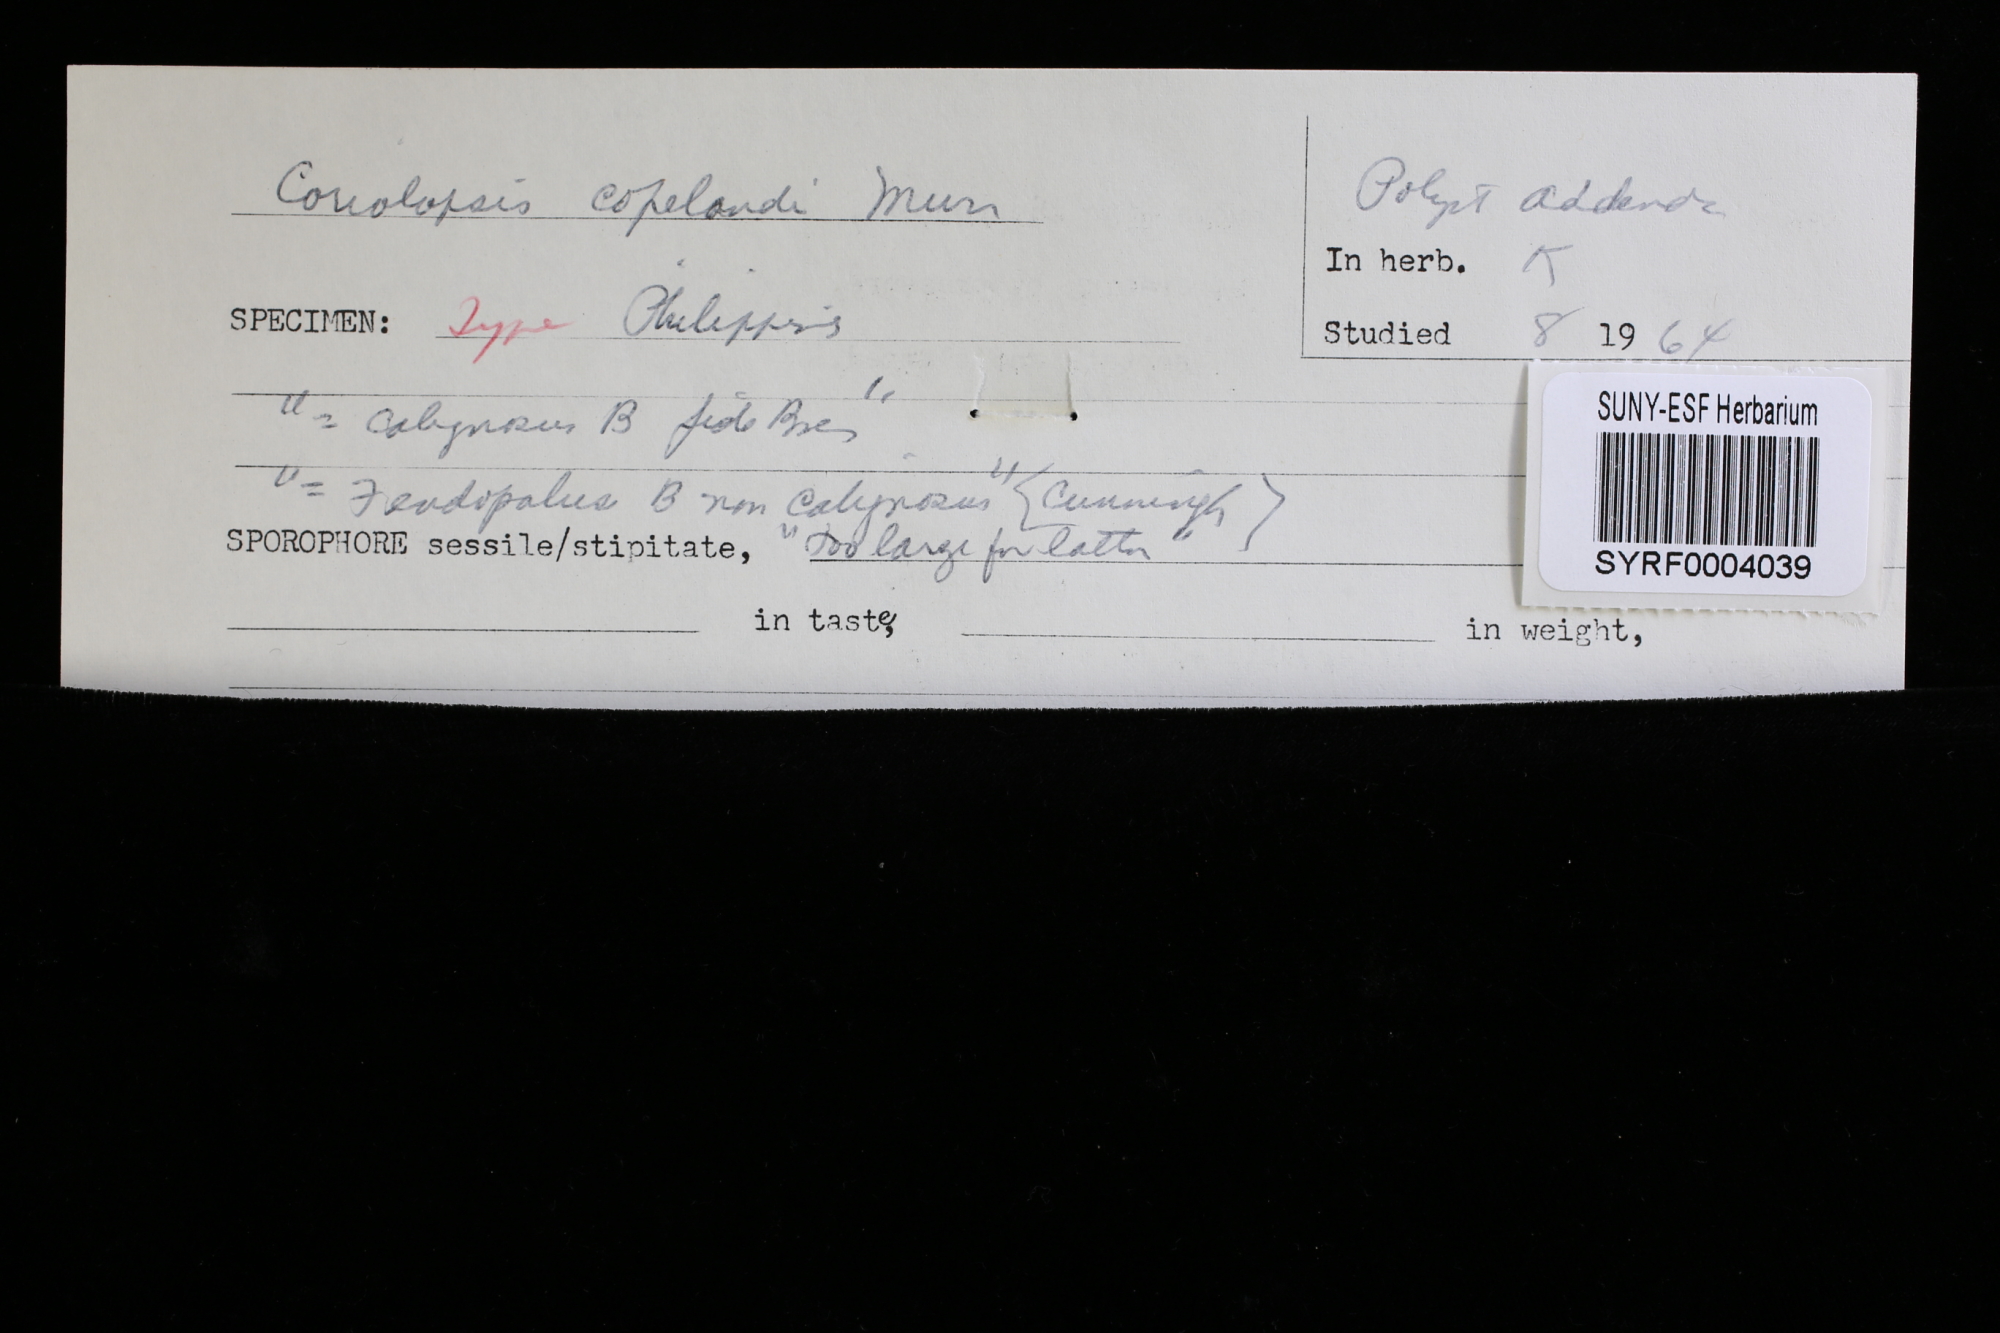 Coriolopsis copelandi Murr
Polypt addenda
In herb. K
SPECIMEN: Type Philippines
Studied 8 1964
"= caliginosus B fide Bres"
"= Feudopalus B non caliginosus" {Cunningh}
SPOROPHORE sessile/stipitate, "too large for latter"
in taste, in weight,
SUNY-ESF Herbarium
SYRF0004039